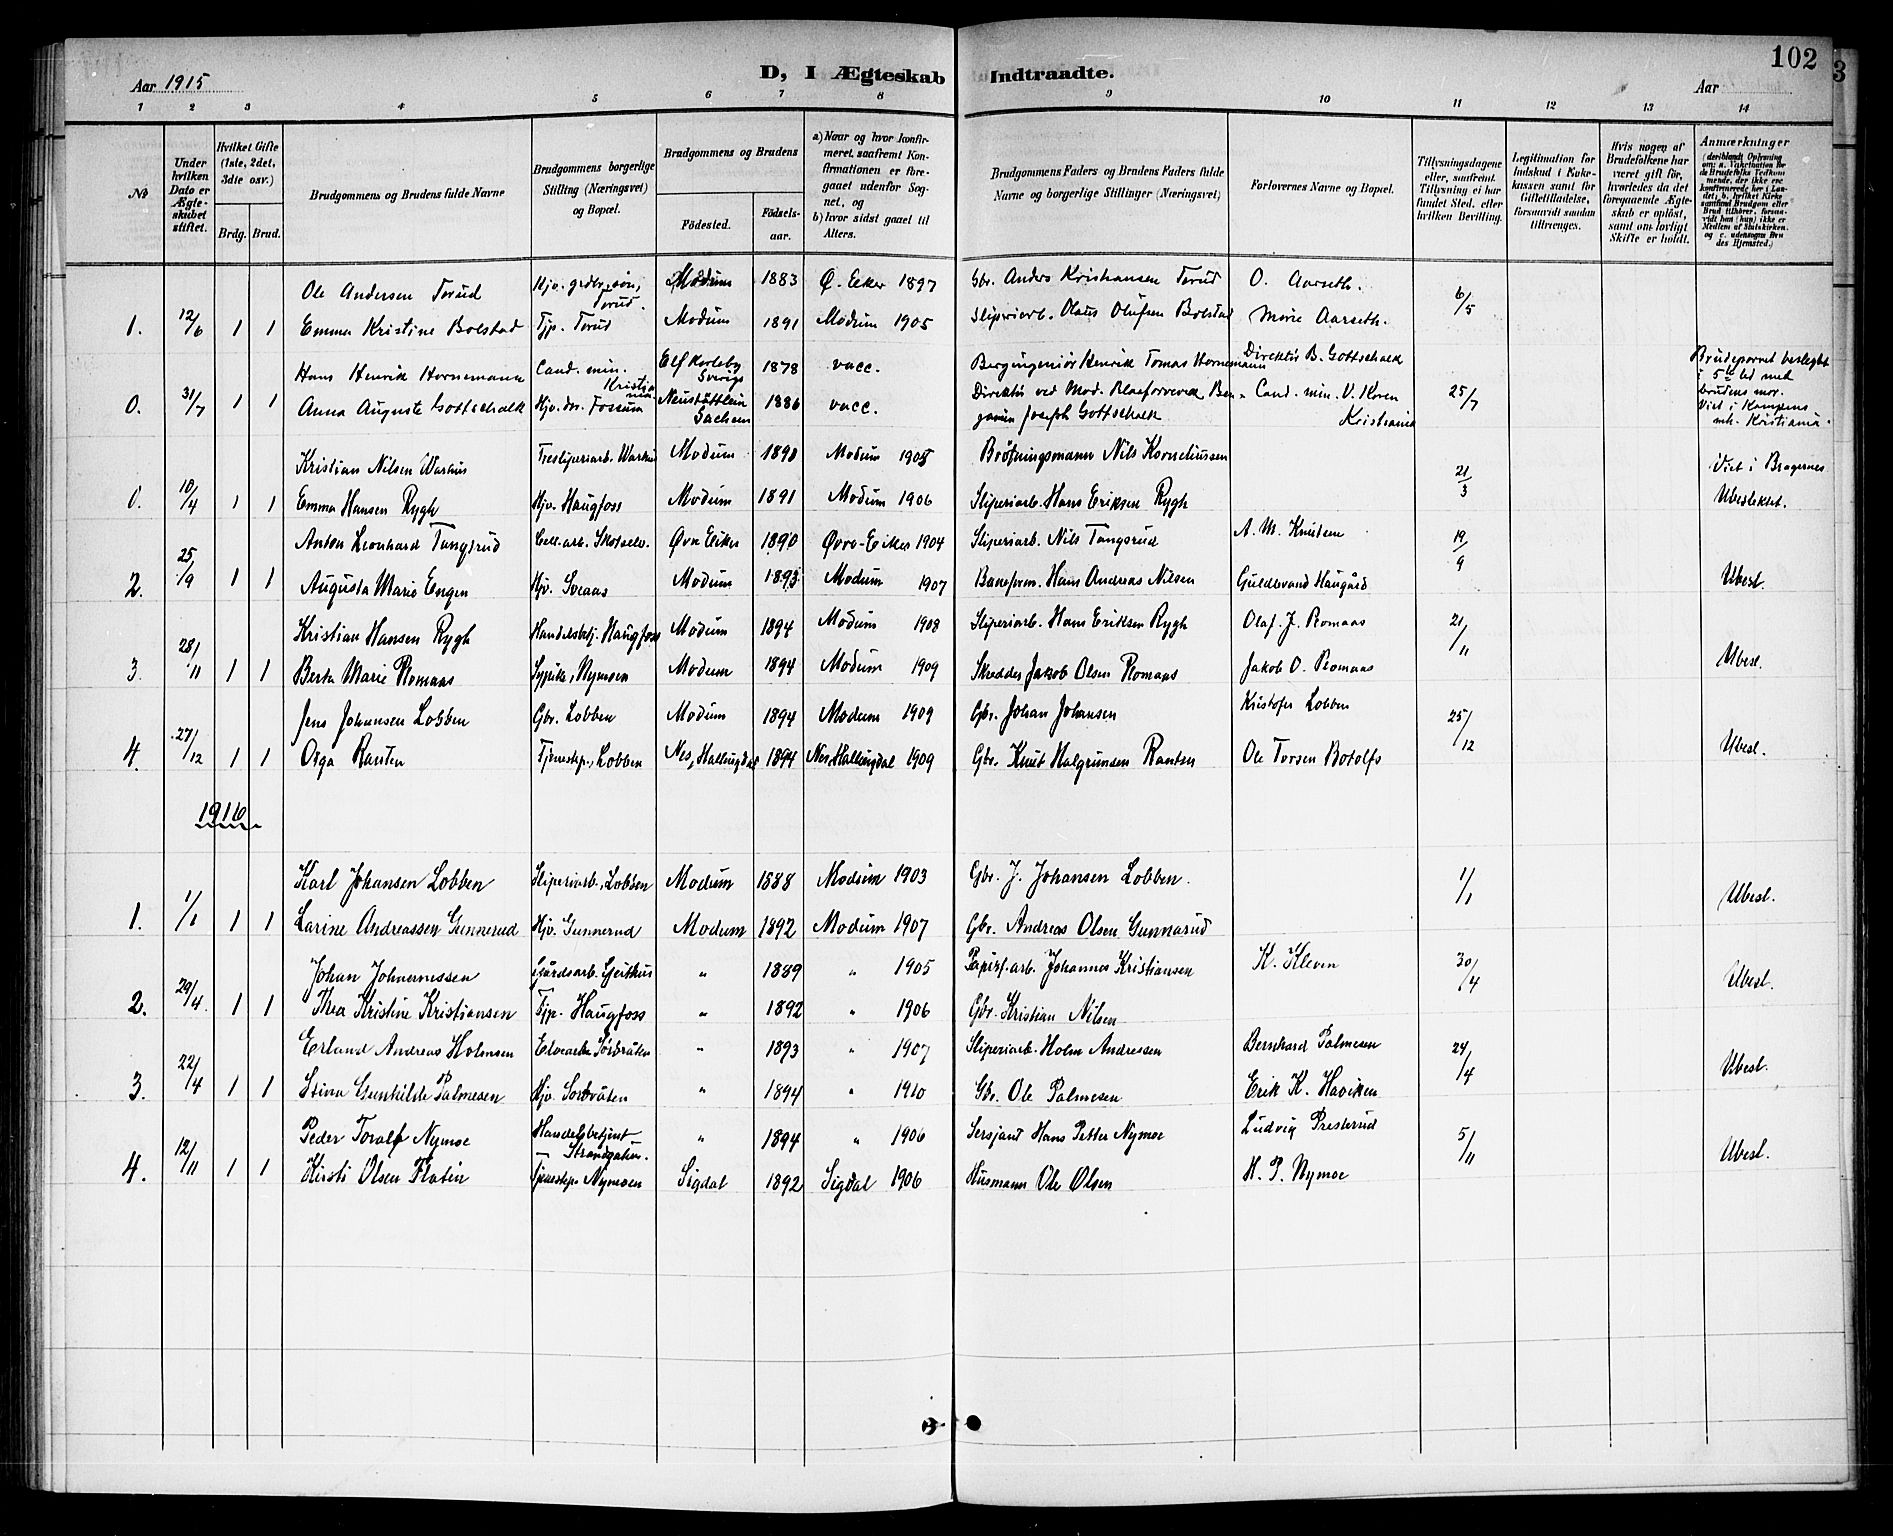 102
3
Aar 1915
D, I Ægteskab Indtraadte.
Aar
1 2 3 4 5 6 7 8 9 10 11 12 13 14
No
Under hvilken Dato er Ægteskabet stiftet.
Hvilket Gifte (1ste, 2det, 3die osv.)
Brdg. Brud.
Brudgommens og Brudens fulde Navne
Brudgommens borgerlige Stilling (Næringsvei) og Bopæl.
Brudgommens og Brudens
Födested.
Födselsaar.
a) Naar og hvor konfirmeret, saafremt Konfirmationen er foregaaet udenför Sognet, og
b) hvor sidst gaaet til Alters.
Brudgommens Faders og Brudens Faders fulde Navne og borgerlige Stillinger (Næringsvei)
Forlovernes Navne og Bopæl.
Tillysningsdagene eller, saafremt Tillysning ei har fundet Sted, efter hvilken Bevilling.
Legitimation for Indskud i Enkekassen samt for Giftetilladelse, forsaavidt saadan tiltrænges.
Hvis nogen af Brudefolkene har været gift för, hvorledes da det foregaaende Ægteskab er oplöst, samt om lovligt Skifte er holdt.
Anmærkninger
Ole Andersen Torud Modum 1883 Ø. Eeker 1897 Gbr. Anders Kristiansen Torud O. Aarseth.
1. 12/6 1 1 Emma Kristine Bolstad Tjp. Torud Modum 1891 Modum 1905 Sliperiarb. Olaus Olufsen Bolstad Marie Aarseth. 6/5
Hans Henrik Hornemann Cand. min. Kristiania Elfkarleby Sverige 1878 vacc. Bergingeniör Henrik Tomas Hornemann Direktör B. Gottschalk
0. 31/7 1 1 Anna Auguste Gottschalk Hjv. dr. Fossum Neustättlein Sachsen 1886 vacc. Direktör ved Mod. Blaafarveverk Benjamin Joseph Gottschalk Cand. min. V. Koren Kristiania 25/7
Brudeparret beslegtet i 5te led med brudens mor. Viet i Kampens mh. Kristiania.
Kristian Nilsen Warhus Tresliperiarb. Warhus Modum 1890 Modum 1905 Bröstningsmann Nils Korneliussen Viet i Bragernes
0. 10/4 1 1 Emma Hansen Rygh Hjv. Haugfoss Modum 1891 Modum 1906 Sliperiarb. Hans Eriksen Rygh 21/3 Ubeslektet.
Anton Leonhard Tangsrud Cell.arb. Skotselv. Øvre Eiker 1890 Øvre-Eiker 1904 Sliperiarb. Nils Tangsrud A. M. Knutsen
2. 25/9 1 1 Augusta Marie Engen Hjv. Sveaas Modum 1893 Modum 1907 Baneform. Hans Andreas Nilsen Guldbrand Haugård 19/9 Ubesl.
Kristian Hansen Rygh Handelsbetj. Haugfoss Modum 1894 Modum 1908 Sliperiarb. Hans Eriksen Rygh Olaf J. Romaas
3. 28/11 1 1 Berta Marie Romaas Sypike, Nymoen Modum 1894 Modum 1909 Skredder Jakob Olsen Romaas Jakob O. Romaas 21/11 Ubesl.
Jens Johansen Lobben Gbr. Lobben Modum 1894 Modum 1909 Gbr. Johan Johansen Kristofer Lobben
4. 27/12 1 1 Olga Ranten Tjenestep., Lobben Nes, Hallingdal 1894 Nes, Hallingdal 1909 Gbr. Knut Halgrimsen Ranten Ole Torsen Botolfs 25/12 Ubesl.
1916
Karl Johansen Lobben Sliperiarb., Lobben Modum 1888 Modum 1903 Gbr. J. Johansen Lobben.
1. 1/1 1 1 Larine Andreassen Gunnerud Hjv. Gunnerud Modum 1892 Modum 1907 Gbr. Andreas Olsen Gunnarud 1/1 Ubesl.
Johan Johannessen Gårdsarb. Geithus „ 1889 „ 1905 Papirf.arb. Johannes Kristiansen K. Kleven
2. 29/4. 1 1 Thea Kristine Kristiansen Tjp. Haugfoss „ 1892 „ 1906 Gbr. Kristian Nilsen 30/4 Ubesl.
Erland Andreas Holmsen Elvearb. Sörbråten „ 1893 „ 1907 Sliperiarb. Holm Andressen Bernhard Palmesen
3. 22/4 1 1 Stina Gunhilde Palmesen Hjv. Sörbråten „ 1894 „ 1910 Gbr. Ole Palmesen Erik K. Haviken 24/4 Ubesl.
Peder Toralf Nymoe Handelsbetjent Strandgaten. „ 1894 „ 1906 Sersjant Hans Petter Nymoe Ludvig Presterud
4. 12/11 1 1 Kirsti Olsen Flatin Tjenestep. Nymoen Sigdal 1892 Sigdal 1906 Husmann Ole Olsen H. P. Nymoe 5/11 Ubesl.